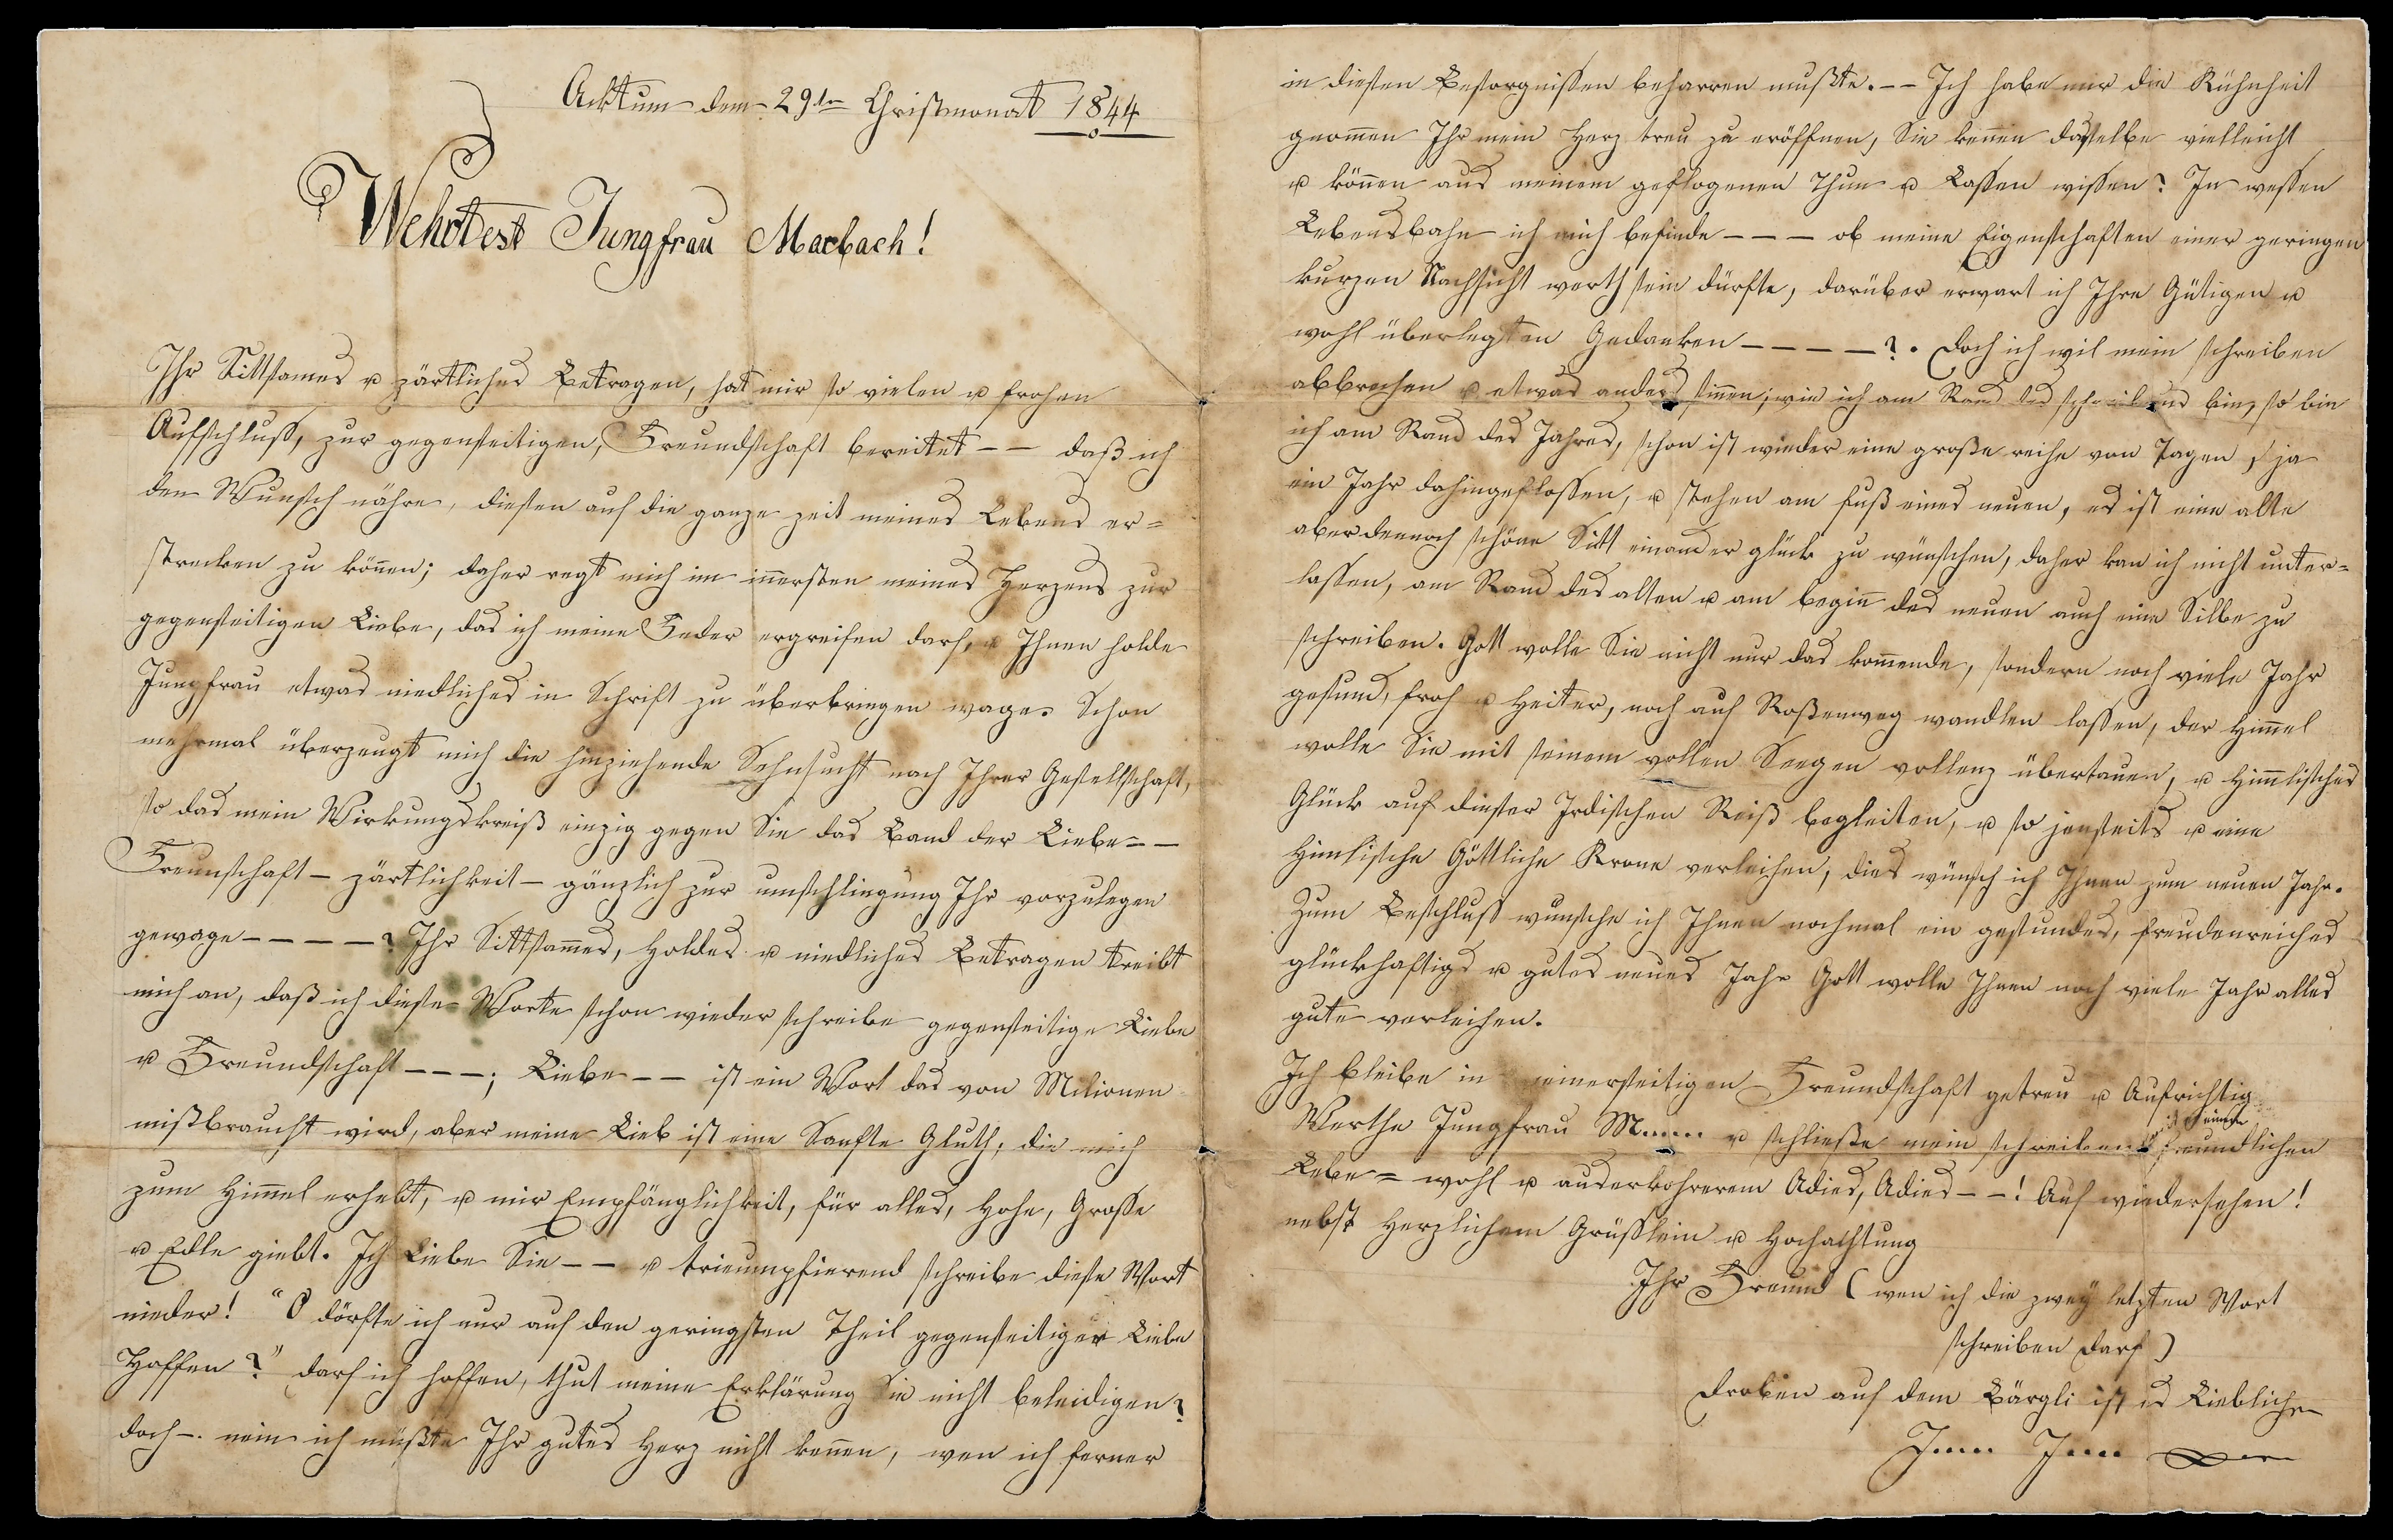 Acktum dem 29ten Christmonat 1844
Wehrtest Jungfrau Marbach!
Ihr Sittsames u zärtliches Betragen, hat mir so vielen u frohen
Aufschluss, zur gegenseitigen, Freundschaft bereitet – – daß ich
den Wunsch nähre, diesen auf die ganze zeit meines Lebens er=
strecken zu können; daher regt mich im innersten meines Herzens zur
gegenseitigen Liebe, das ich meine Feder ergreifen darf, u Ihnen holde
Jungfrau etwas niedliches in Schrift zu überbringen wage. Schon
mehrmal überzeugt mich die hinziehende Sehnsucht nach Ihrer Gesellschaft,
so das mein Wirkungskreiß einzig gegen Sie das Band der Liebe – –
Freunschaft – zärtlichkeit – gänzlich zur umschlingung Ihr vorzulegen
gewage – – – – –? Ihr Sittsammes, Holdes u niedliches Betragen treibt
mich an, daß ich diese Worte schon wieder schreibe gegenseitige Liebe
u Freundschaft – – –; Liebe – – ist ein Wort das von Milionen
mißbraucht wird, aber meine Lieb ist eine Sanfte Gluth, die mich
zum Himmel erhebt, u mir Empfänglichkeit, für alles, Hohe, Grosse
u Edle giebt. Ich Liebe Sie – – u trieumpfierend schreibe diese Wort
nieder! "O dörfte ich nur auf den geringsten Theil gegenseitiger Liebe
Hoffen?" darf ich hoffen, thut meine Erklärung Sie nicht beleidigen?
doch –. nein ich müßte Ihr gutes Herz nicht kennen, wen ich ferner
in diesen Besorgnissen beharren mußte. – – Ich habe mir die Kühnheit
gnommen Ihr mein Herz treu zu eröffnen, Sie kennen dasselbe vielleicht
u können aus meinem gepflogenen Thun u Lassen wissen? In wessen
Lebensbahn ich mich befinde – – – ob meine Eigenschaften einer geringen
kurzen Nachsicht werth sein dürfte, darüber erwart ich Ihre Gütigen u
wohl überlegten Gedanken – – – – –?. Doch ich wil mein schreiben
abbrechen u etwas anders sinnen; wie ich am Rand des schreibens bin, so bin
ich am Rand des Jahres, schon ist wieder eine große reihe von Tagen, ja
ein Jahr dahingeflossen, u stehen am fuß eines neuen, es ist eine alte
aber dennoch schöne Sitt einander glück zu wünschen, daher kan ich nicht unter=
lassen, am Rand des alten u am beginn des neuen auch eine Silbe zu
schreiben. Gott wolle Sie nicht nur das kommende, sondern noch viele Jahr
gesund, froh u Heiter, noch auf Roßenweg wandlen lassen, der Himmel
wolle Sie mit seinem vollen Seegen vollenz übertauen, u Himmlisches
Glück auf dieser Irdischen Reiß begleiten, u so jenseits u eine
Himlische Göttliche Krone verleihen, dies wünsch ich Ihnen zum neuen Jahr.
Zum Beschluss wunsche ich Ihnen nochmal ein gesundes, freudenreiches
glückhaftigs u gutes neues Jahr Gott wolle Ihnen noch viele Jahr alles
gute verleihen.
Ich bleibe in meinerseitigen Freundschaft getreu u Aufrichtig
Werthe Jungfrau M..... u schließe mein schreiben mit einem freundlichen
Lebe = wohl u auserkohrerem Adies, Adies – –! Auf wiedersehen!
nebst Herzlichem Grüsslein u Hochachtung
Ihr Freund (wen ich die zwey letzten Wort
schreiben darf)
Droben auf dem Bärgli ist es Lieblich
J.... J....